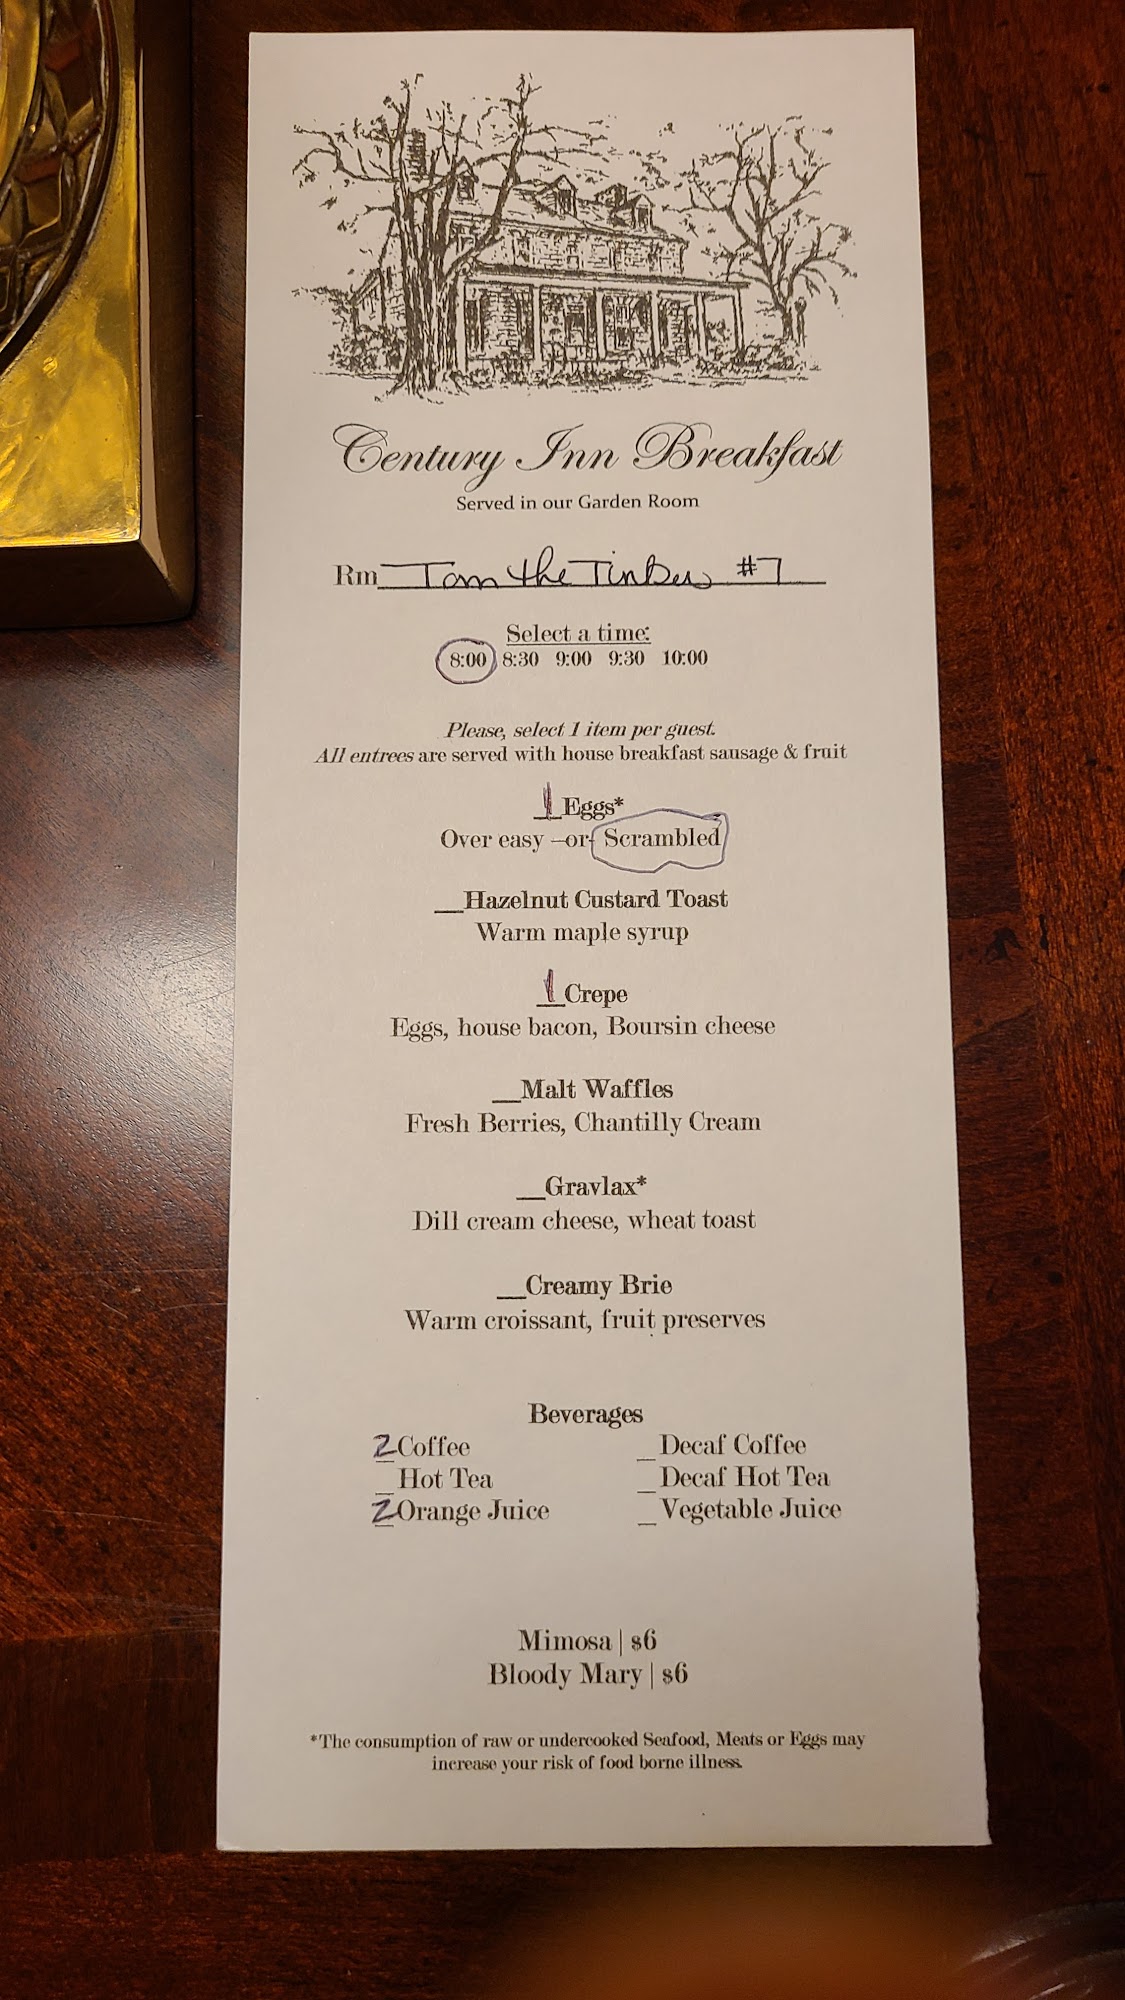 Century Inn Breakfast
Served in our Garden Room
Rm Tom the Tinker #7
Select a time:
8:00 8:30 9:00 9:30 10:00
Please, select 1 item per guest.
All entrees are served with house breakfast sausage & fruit
1 Eggs*
Over easy –or– Scrambled
__Hazelnut Custard Toast
Warm maple syrup
1 Crepe
Eggs, house bacon, Boursin cheese
__Malt Waffles
Fresh Berries, Chantilly Cream
__Gravlax*
Dill cream cheese, wheat toast
__Creamy Brie
Warm croissant, fruit preserves
Beverages
2 Coffee _Decaf Coffee
_Hot Tea _Decaf Hot Tea
2 Orange Juice _Vegetable Juice
Mimosa | $6
Bloody Mary | $6
*The consumption of raw or undercooked Seafood, Meats or Eggs may
increase your risk of food borne illness.